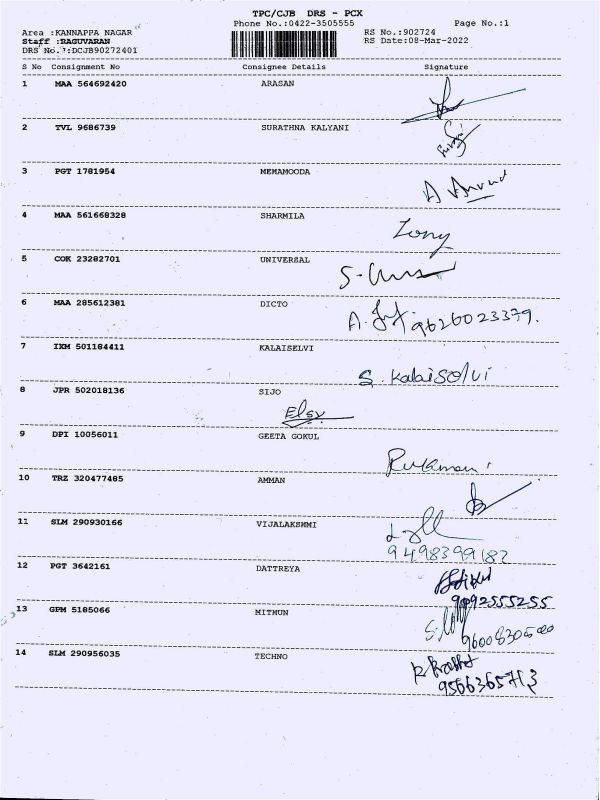 TPC/CJB DRS - PCX
Phone No.:0422-3505555 Page No.:1
Area :KANNAPPA NAGAR RS No.:902724
Staff :RAGUVARAN RS Date:08-Mar-2022
DRS No.?:DCJB90272401
S No Consignment No Consignee Details Signature
1 MAA 564692420 ARASAN
2 TVL 9686739 SURATHNA KALYANI
3 PGT 1781954 MEMAMOODA
A Anand
4 MAA 561668328 SHARMILA
Zony
5 COK 23282701 UNIVERSAL
6 MAA 285612381 DICTO
9626023379.
7 IXM 501184411 KALAISELVI
S. Kalaiselvi
8 JPR 502018136 SIJO
Elsy
9 DPI 10056011 GEETA GOKUL
Rukmani
10 TRZ 320477485 AMMAN
11 SLM 290930166 VIJALAKSHMI
9498399182
12 PGT 3642161 DATTREYA
9092555255
13 GPM 5185066 MITHUN
9600830500
14 SLM 290956035 TECHNO
9566365713